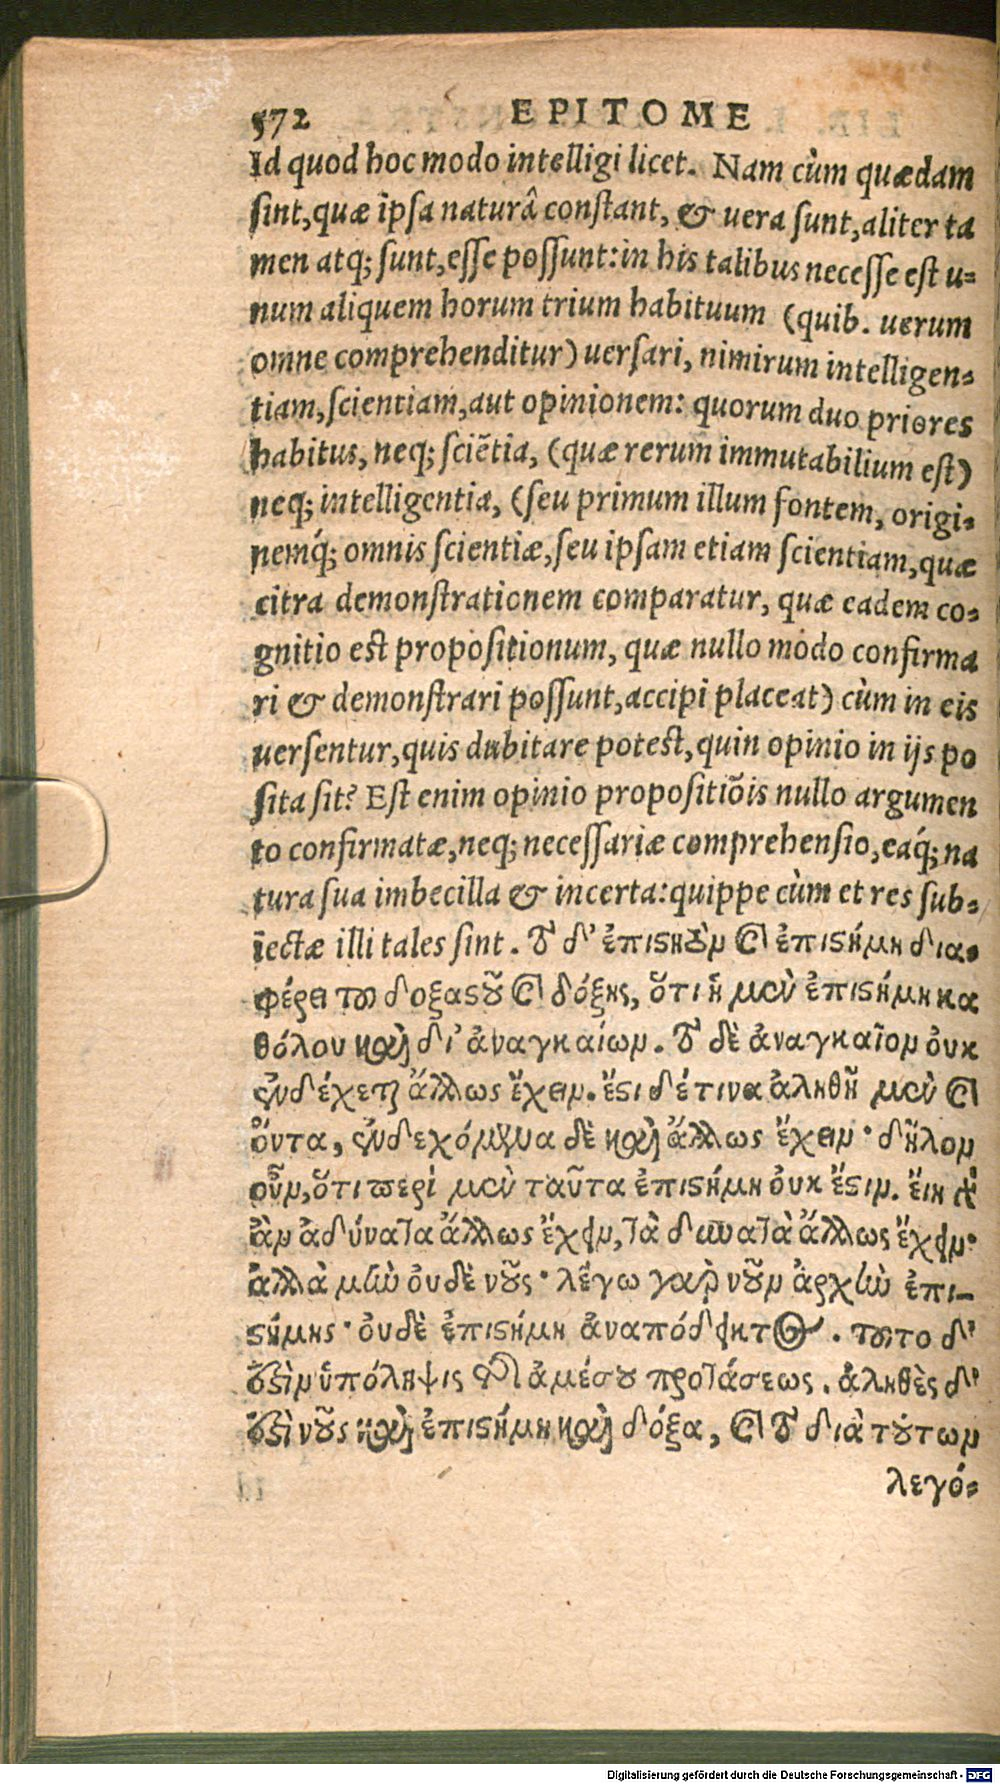 572 EPITOME
Id quod hoc modo intelligi licet. Nam cùm quædam
sint, quæ ipsa naturâ constant, & uera sunt, aliter ta
men atq; sunt, esse possunt: in his talibus necesse est u-
num aliquem horum trium habituum (quib. uerum
omne comprehenditur) uersari, nimirum intelligen-
tiam, scientiam, aut opinionem: quorum duo priores
habitus, neq; sciẽtia, (quæ rerum immutabilium est)
neq; intelligentia, (seu primum illum fontem, origi-
nemq́; omnis scientiæ, seu ipsam etiam scientiam, quæ
citra demonstrationem comparatur, quæ eadem co-
gnitio est propositionum, quæ nullo modo confirma
ri & demonstrari possunt, accipi placeat) cùm in eis
uersentur, quis dubitare potest, quin opinio in ijs po
sita sit? Est enim opinio propositiõis nullo argumen
to confirmatæ, neq; necessariæ comprehensio, eaq́; na
tura sua imbecilla & incerta: quippe cùm et res sub-
iectæ illi tales sint. Τὸ δ' ἐπιστητὸν καὶ ἐπιστήμη δια-
φέρει τοῦ δοξαστοῦ καὶ δόξης, ὅτι ἡ μὲν ἐπιστήμη κα
θόλου καὶ δι' ἀναγκαίων. τὸ δὲ ἀναγκαῖον οὐκ
ἐνδέχεται ἄλλως ἔχειν. ἔστι δέ τινα ἀληθῆ μὲν καὶ
ὄντα, ἐνδεχόμενα δὲ καὶ ἄλλως ἔχειν· δῆλον
οὖν, ὅτι περὶ μὲν ταῦτα ἐπιστήμη οὐκ ἔστιν. εἴη γὰρ
ἂν ἀδύνατα ἄλλως ἔχειν, τὰ δυνατὰ ἄλλως ἔχειν·
ἀλλὰ μὴν οὐδὲ νοῦς· λέγω γὰρ νοῦν ἀρχὴν ἐπι-
στήμης· οὐδὲ ἐπιστήμη ἀναπόδεικτος. τοῦτο δ'
ἐστὶν ὑπόληψις τῆς ἀμέσου προτάσεως. ἀληθὲς δ'
ἐστὶ νοῦς καὶ ἐπιστήμη καὶ δόξα, καὶ τὸ διὰ τούτων
λεγό-
Digitalisierung gefördert durch die Deutsche Forschungsgemeinschaft - DFG